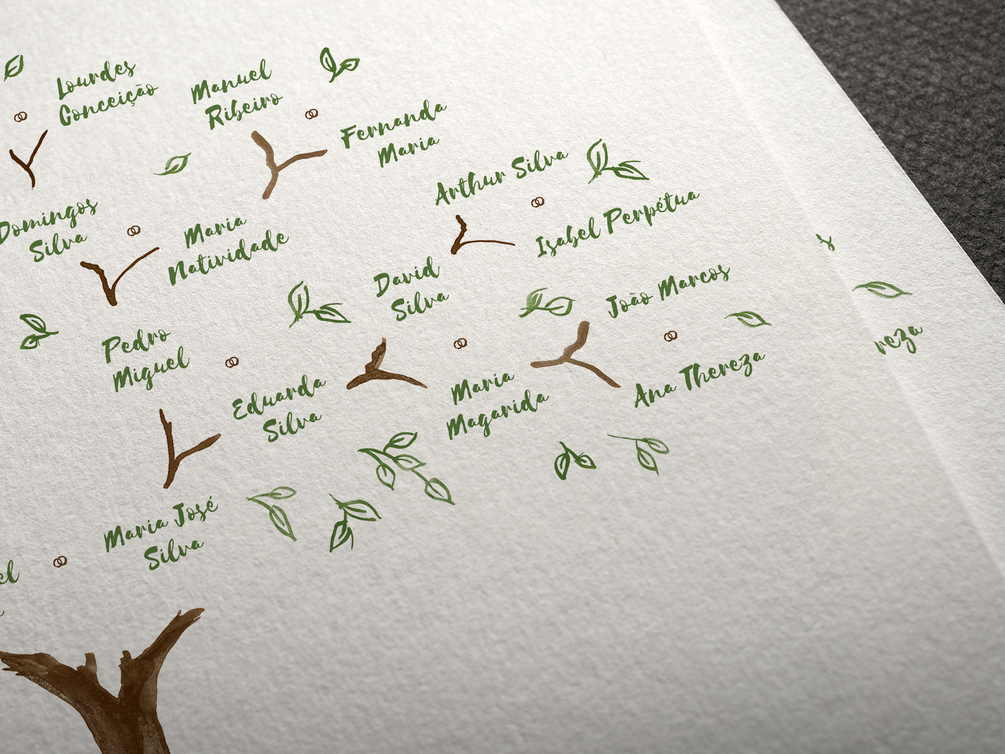 Lourdes
Conceição
Manuel
Ribeiro
Fernanda
Maria
Arthur Silva
Isabel Perpétua
Domingos
Silva
Maria
Natividade
David
Silva
João Marcos
Pedro
Miguel
Eduarda
Silva
Maria
Magarida
Ana Thereza
reza
Maria José
Silva
el